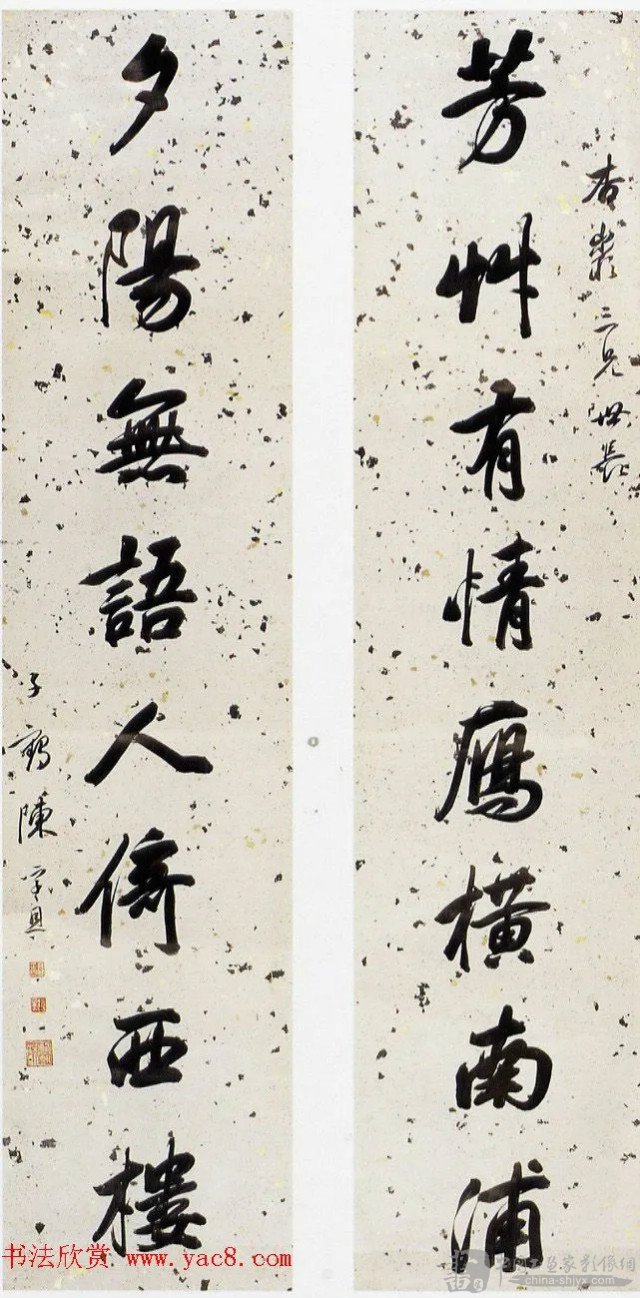 杏叢三兄世長
芳艸有情鴈橫南浦
夕陽無語人倚西樓
子鶴陳孚恩
书法欣赏 www.yac8.com
china-shjyx.com